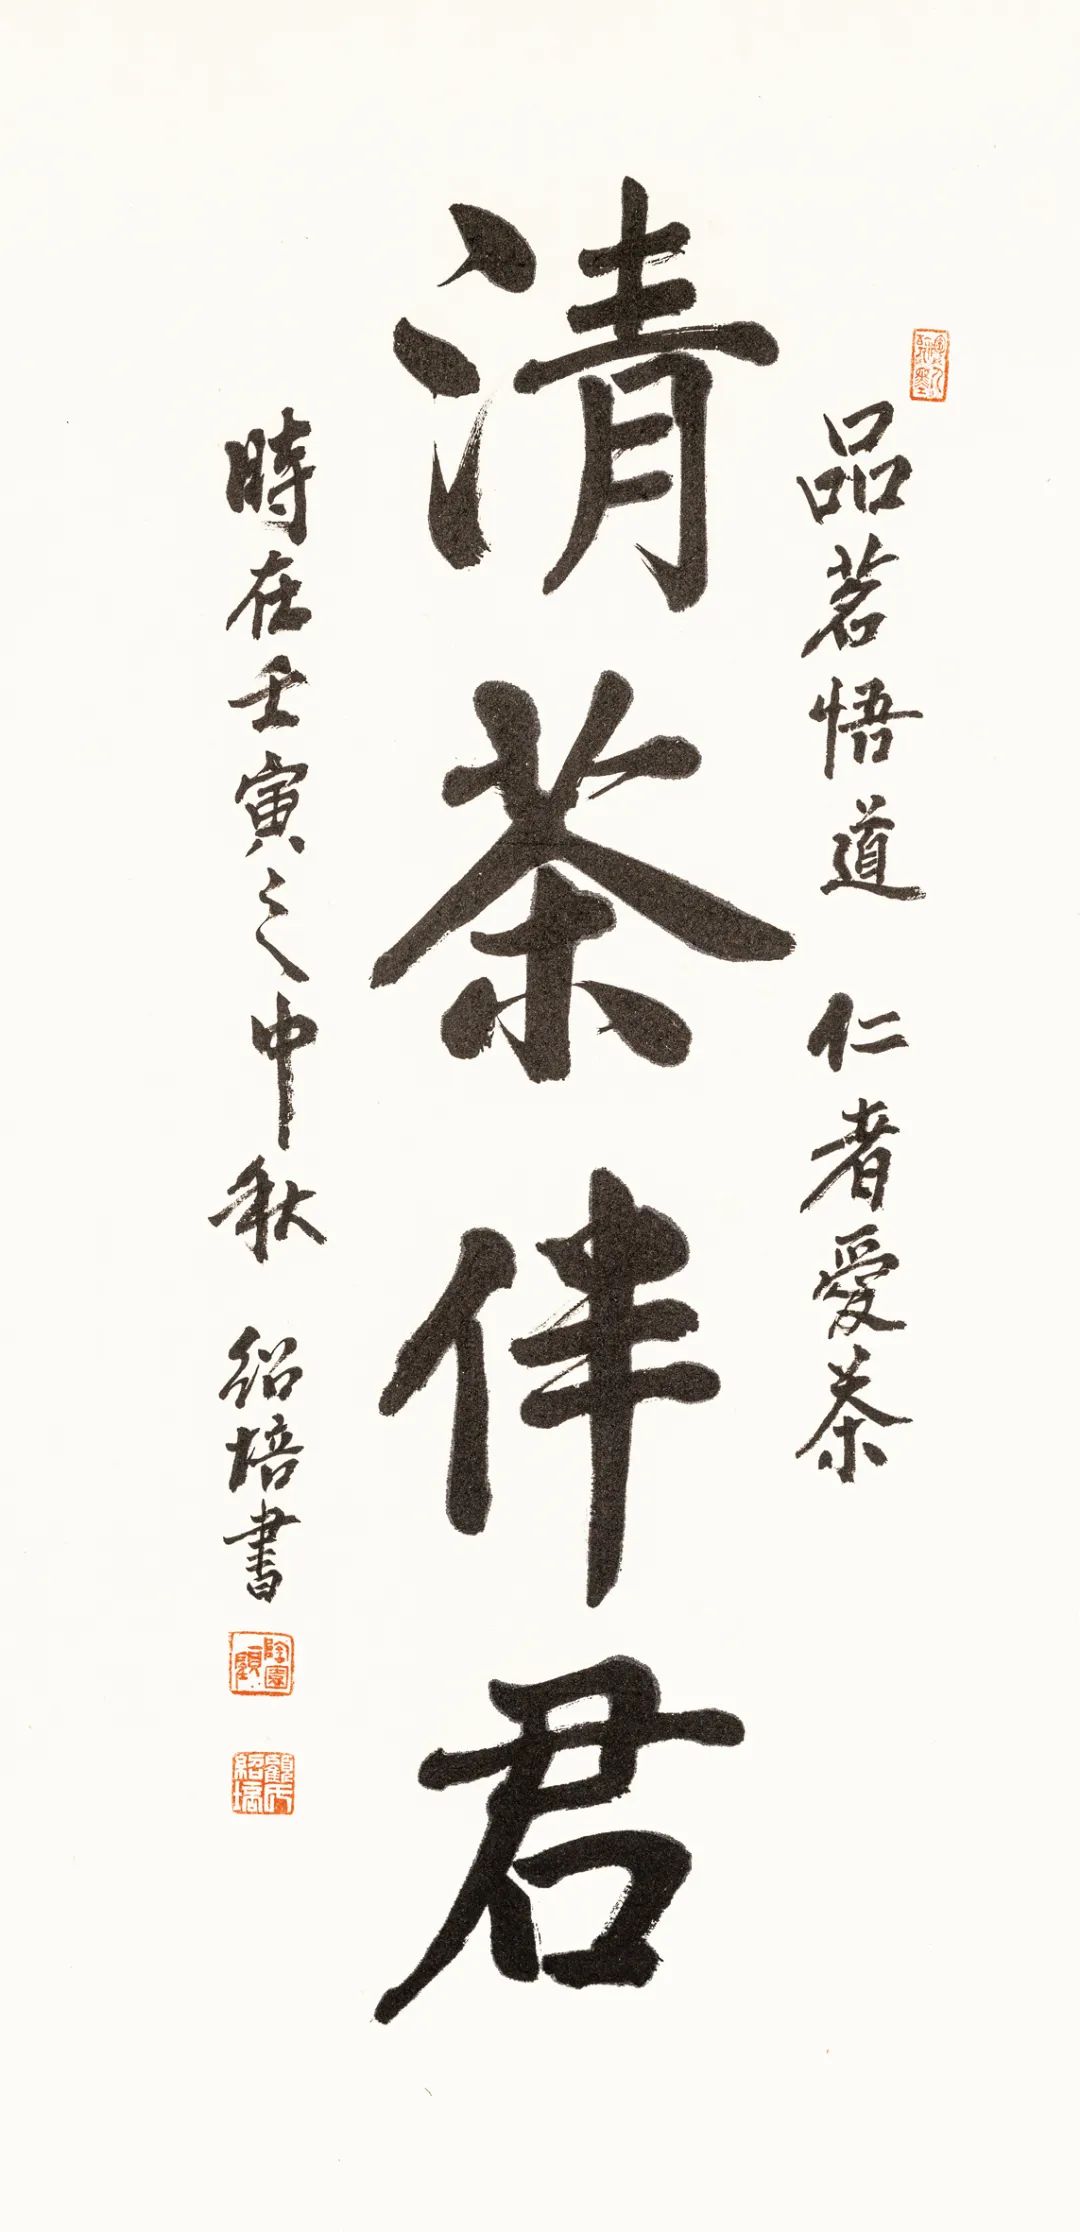 品茗悟道 仁者愛茶
清茶伴君
時在壬寅之中秋 紹培書
顧氏紹培